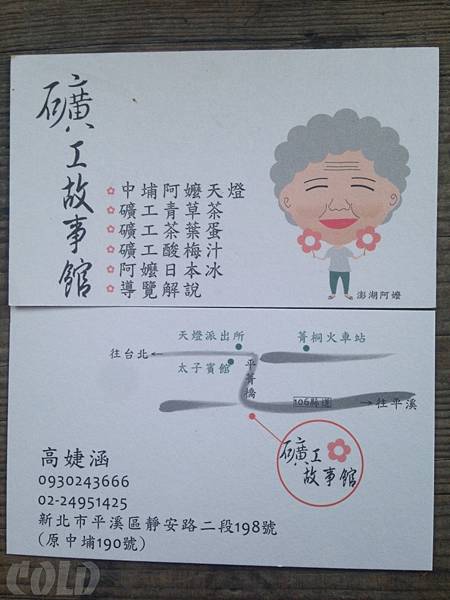 礦工故事館
中埔阿嬤天燈
礦工青草茶
礦工茶葉蛋
礦工酸梅汁
阿嬤日本冰
導覽解說
澎湖阿嬤
天燈派出所
菁桐火車站
往台北
太子賓館
平菁橋
106縣道
往平溪
礦工
故事館
高婕涵
0930243666
02-24951425
新北市平溪區靜安路二段198號
(原中埔190號)
COLD